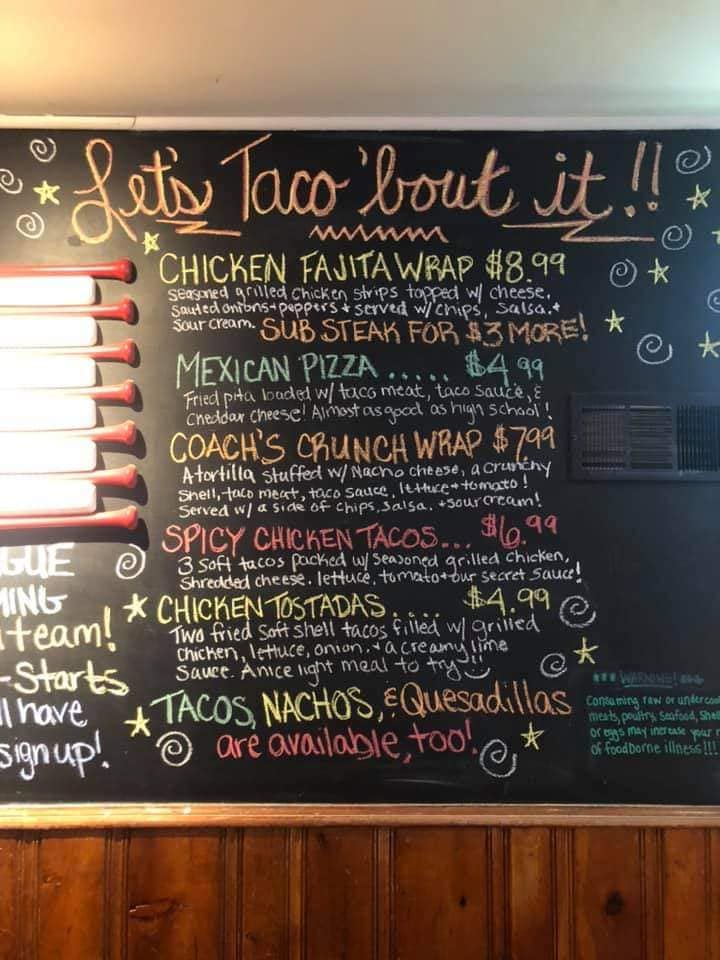 Let's Taco 'bout it!!
CHICKEN FAJITA WRAP $8.99
Seasoned grilled chicken strips topped w/ cheese,
Sauted onions + peppers + served w/ chips, Salsa, +
Sour cream. SUB STEAK FOR $3 MORE!
MEXICAN PIZZA ..... $4.99
Fried pita loaded w/ taco meat, taco sauce, &
Cheddar cheese! Almost as good as high school!
COACH'S CRUNCH WRAP $7.99
A tortilla stuffed w/ Nacho cheese, a crunchy
Shell, taco meat, taco sauce, lettuce + tomato!
Served w/ a side of chips, Salsa, + sour cream!
SPICY CHICKEN TACOS... $6.99
3 Soft tacos packed w/ seasoned grilled chicken,
Shredded cheese, lettuce, tomato + our secret sauce!
CHICKEN TOSTADAS.... $4.99
Two fried soft shell tacos filled w/ grilled
Chicken, lettuce, onion, + a creamy lime
Sauce. A nice light meal to try!!
TACOS, NACHOS, & Quesadillas
are available, too!
GUE
MING
team!
-Starts
ll have
sign up!
WARNING!
Consuming raw or undercoo
meats, poultry, Seafood, She
or eggs may increase your r
of foodborne illness!!!